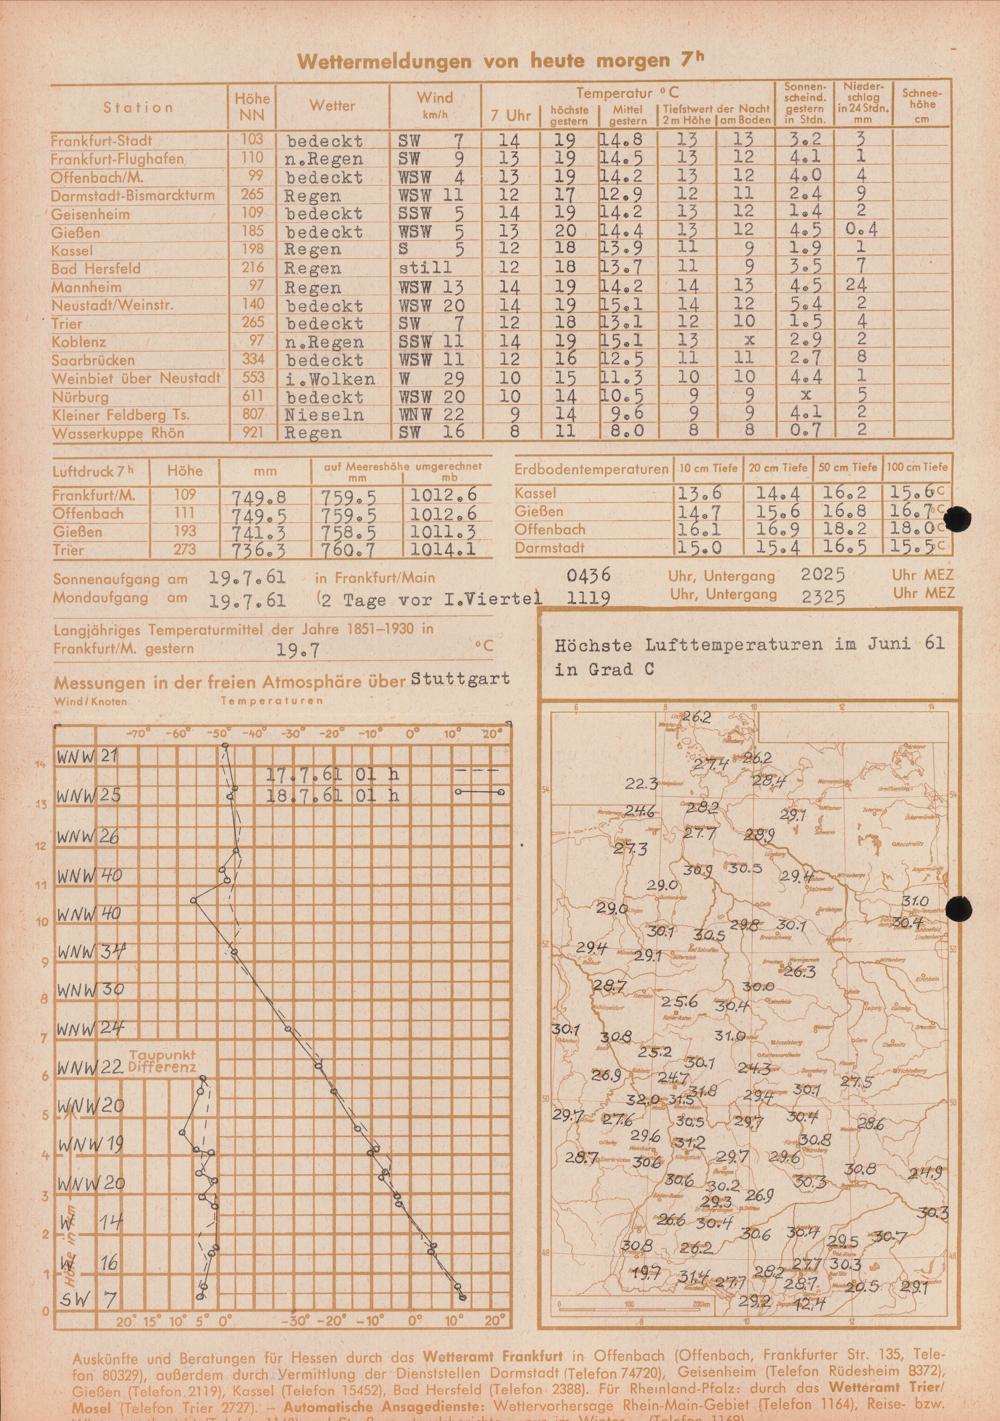 Wettermeldungen von heute morgen 7h
Station Höhe NN Wetter Wind km/h Temperatur °C 7 Uhr höchste gestern Mittel gestern Tiefstwert der Nacht 2 m Höhe am Boden Sonnenscheind. gestern in Stdn. Niederschlag in 24 Stdn. mm Schneehöhe cm
Frankfurt-Stadt 103 bedeckt SW 7 14 19 14.8 13 13 3.2 3
Frankfurt-Flughafen 110 n.Regen SW 9 13 19 14.5 13 12 4.1 1
Offenbach/M. 99 bedeckt WSW 4 13 19 14.2 13 12 4.0 4
Darmstadt-Bismarckturm 265 Regen WSW 11 12 17 12.9 12 11 2.4 9
Geisenheim 109 bedeckt SSW 5 14 19 14.2 13 12 1.4 2
Gießen 185 bedeckt WSW 5 13 20 14.4 13 12 4.5 0.4
Kassel 198 Regen S 5 12 18 13.9 11 9 1.9 1
Bad Hersfeld 216 Regen still 12 18 13.7 11 9 3.5 7
Mannheim 97 Regen WSW 13 14 19 14.2 14 13 4.5 24
Neustadt/Weinstr. 140 bedeckt WSW 20 14 19 15.1 14 12 5.4 2
Trier 265 bedeckt SW 7 12 18 13.1 12 10 1.5 4
Koblenz 97 n.Regen SSW 11 14 19 15.1 13 x 2.9 2
Saarbrücken 334 bedeckt WSW 11 12 16 12.5 11 11 2.7 8
Weinbiet über Neustadt 553 i.Wolken W 29 10 15 11.3 10 10 4.4 1
Nürburg 611 bedeckt WSW 20 10 14 10.5 9 9 x 5
Kleiner Feldberg Ts. 807 Nieseln WNW 22 9 14 9.6 9 9 4.1 2
Wasserkuppe Rhön 921 Regen SW 16 8 11 8.0 8 8 0.7 2
Luftdruck 7h Höhe mm auf Meereshöhe umgerechnet mm mb
Frankfurt/M. 109 749.8 759.5 1012.6
Offenbach 111 749.5 759.5 1012.6
Gießen 193 741.3 758.5 1011.3
Trier 273 736.3 760.7 1014.1
Erdbodentemperaturen 10 cm Tiefe 20 cm Tiefe 50 cm Tiefe 100 cm Tiefe
Kassel 13.6 14.4 16.2 15.6 °C
Gießen 14.7 15.6 16.8 16.7 °C
Offenbach 16.1 16.9 18.2 18.0 °C
Darmstadt 15.0 15.4 16.5 15.5 °C
Sonnenaufgang am 19.7.61 in Frankfurt/Main 0436 Uhr, Untergang 2025 Uhr MEZ
Mondaufgang am 19.7.61 (2 Tage vor I.Viertel 1119 Uhr, Untergang 2325 Uhr MEZ
Langjähriges Temperaturmittel der Jahre 1851–1930 in
Frankfurt/M. gestern 19.7 °C
Messungen in der freien Atmosphäre über Stuttgart
Wind/Knoten Temperaturen
-70° -60° -50° -40° -30° -20° -10° 0° 10° 20°
WNW 21
14
17.7.61 01 h
WNW 25 18.7.61 01 h
13
WNW 26
12
WNW 40
11
WNW 40
10
WNW 34
9
WNW 30
8
WNW 24
7
WNW 22 Taupunkt Differenz
6
WNW 20
5
WNW 19
4
WNW 20
3
W 14
2
W 16
1
SW 7
0
Höhe in km
20° 15° 10° 5° 0° -30° -20° -10° 0° 10° 20°
Höchste Lufttemperaturen im Juni 61
in Grad C
6 8 10 12 14
26.2
27.4 26.2
22.3 28.4
24.6 28.2 29.1
27.7 28.9
27.3
30.9 30.5 29.4
29.0
29.0 31.0
30.1 30.5 29.8 30.1 30.4
29.4 29.1
26.3
28.7 30.0
25.6 30.4
30.1 30.8 31.0
25.2 30.1
26.9 24.7 24.3 27.5
32.0 31.5 31.8 29.4 30.1
29.7 27.6 30.5 29.7 30.4 28.6
29.6 31.2 30.8
28.7 30.6 29.7 29.6
30.6 30.2 30.3 30.8 24.9
29.3 26.9
26.6 30.4 30.6 30.4 30.3
30.8 26.2 29.5 30.7
19.7 31.4 27.7 28.2 27.7 30.3
28.7 20.5 29.1
29.2 12.4
0 100 200km
Auskünfte und Beratungen für Hessen durch das Wetteramt Frankfurt in Offenbach (Offenbach, Frankfurter Str. 135, Tele-
fon 80329), außerdem durch Vermittlung der Dienststellen Darmstadt (Telefon 74720), Geisenheim (Telefon Rüdesheim 8372),
Gießen (Telefon 2119), Kassel (Telefon 15452), Bad Hersfeld (Telefon 2388). Für Rheinland-Pfalz: durch das Wetteramt Trier/
Mosel (Telefon Trier 2727). – Automatische Ansagedienste: Wettervorhersage Rhein-Main-Gebiet (Telefon 1164), Reise- bzw.